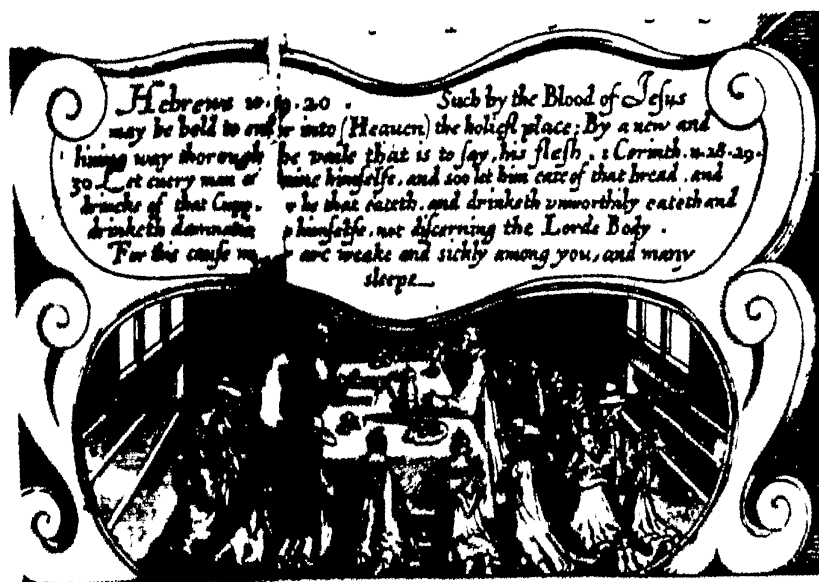 Hebrews 10.19.20. Such by the Blood of Jesus
may be bold to enter into (Heauen) the holiest place; By a new and
liuing way thorough the vaile that is to say, his flesh. 1 Corinth. 11.28.29.
30. Let euery man examine himselfe, and soo let him eate of that bread, and
drincke of that Cupp. he that eateth, and drinketh vnworthily eateth and
drinketh damnation to himselfe, not discerning the Lords Body.
For this cause many are weake and sickly among you, and many
sleepe